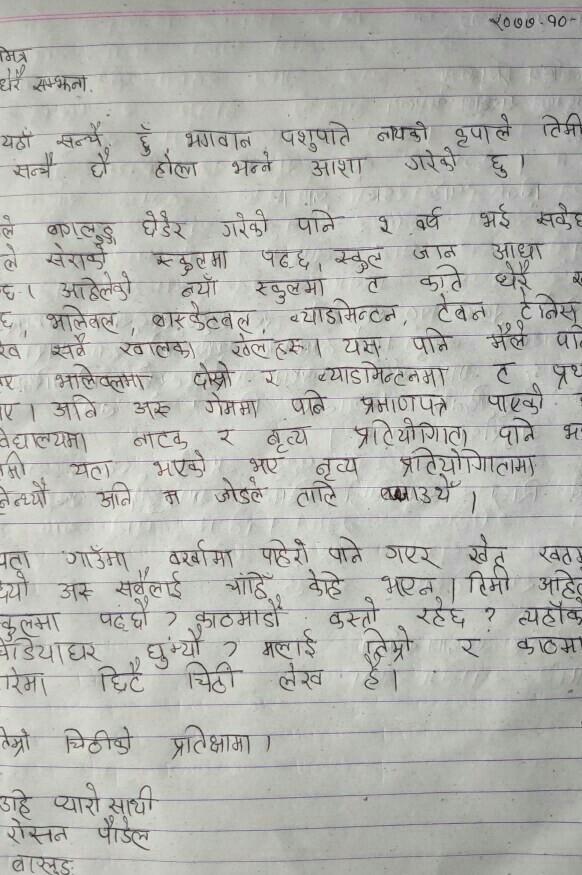 २०७७-१०-
मित्र
धेरै सम्झना
यहाँ सन्चै छुँ भगवान पशुपति नाथको कृपाले तिमी
सन्चै छौ होला भन्ने आशा गरेको छु।
ले बागलुङ्ग छोडेर गएको पनि २ वर्ष भई सकेछ
ले सेराको स्कुलमा पढ्छ, स्कुल जान आधा
छ। अहिलेको नयाँ स्कुलमा त कति धेरै
छ, भलिबल, बास्केटबल, ब्याडमिन्टन, टेबल टेनिस
सबै खालका खेलहरू। यस पनि मैले पनि
भलिबलमा दोस्रो र ब्याडमिन्टनमा त प्रथ
ए। अनि अरू गेममा पनि प्रमाणपत्र पाएको
विद्यालयमा नाटक र नृत्य प्रतियोगिता पनि भ
मी यता भएको भए नृत्य प्रतियोगितामा
अनि म जोडले तालि बजाउथेँ।
यता गाउँमा बर्खामा पहिरो पनि गएर खेत खतम
अरू सबैलाई चाहिँ केहि भएन। तिमी अहिले
कुलमा पढ्छौ? काठमाडौं कस्तो रहेछ? त्यहाँको
चिडियाघर घुम्यौ? मलाई तिम्रो र काठमा
रेमा छिटै चिठी लेख है।
तिम्रो चिठीको प्रतिक्षामा।
उहि प्यारो साथी
रोसन पौडेल
बाग्लुङ